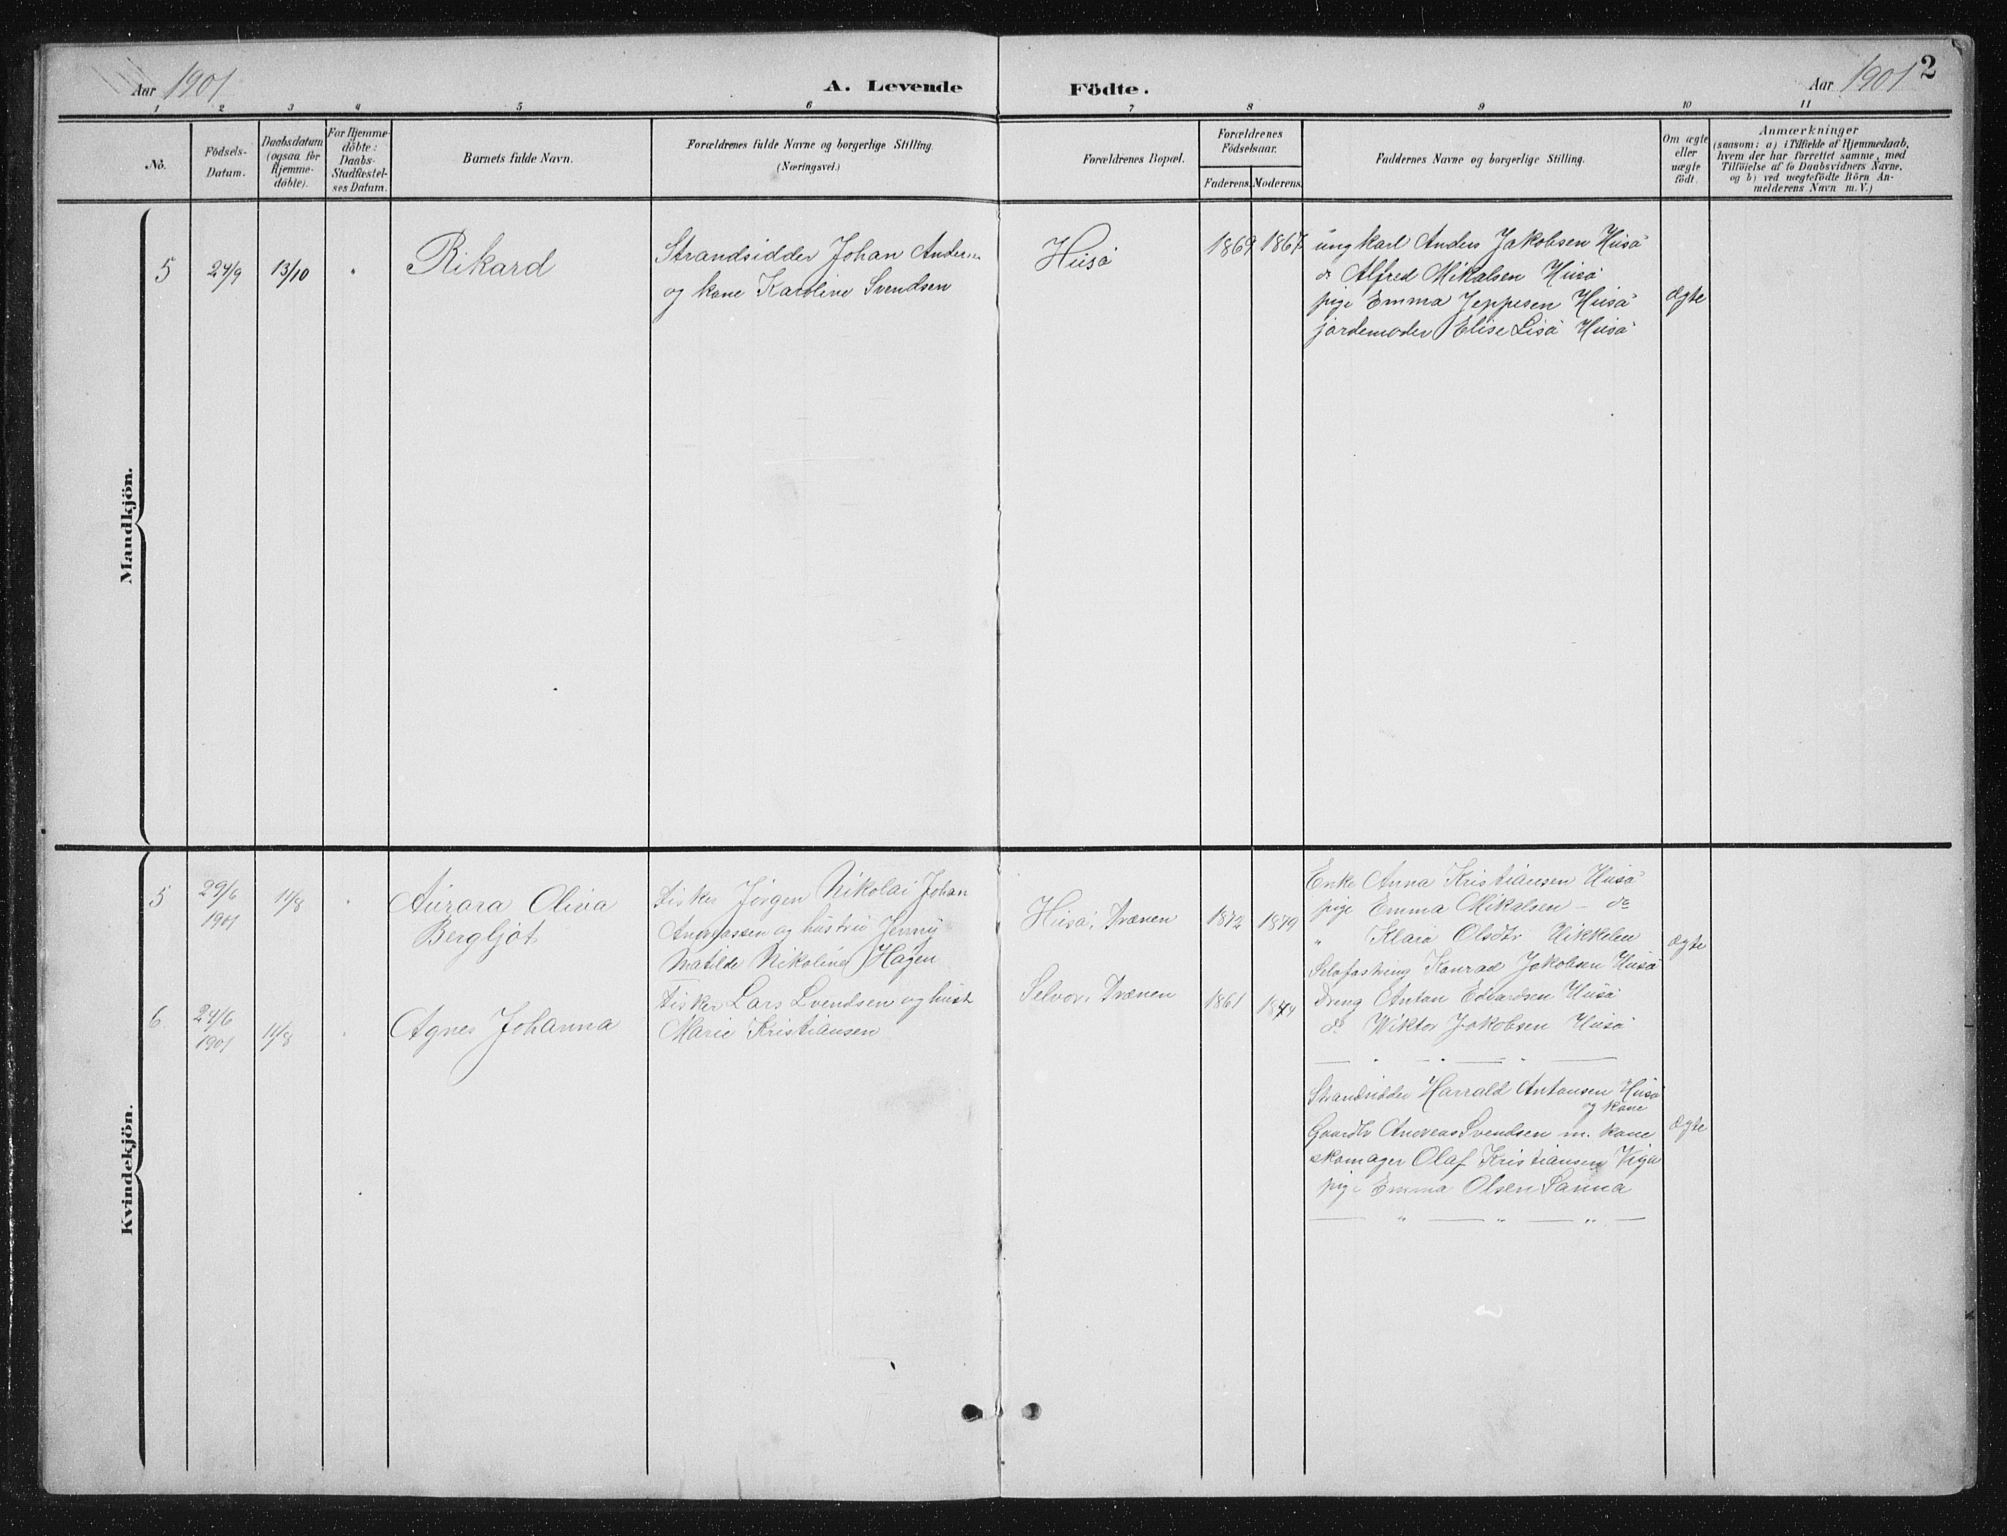 Aar 1901 A. Levende Födte. Aar 1901 2
1 2 3 4 5 6 7 8 9 10 11
No.
Födsels-
Datum.
Daabsdatum
(ogsaa for
Hjemme-
döbte).
For Hjemme-
döbte:
Daabs-
Stadfæstel-
ses Datum.
Barnets fulde Navn.
Forældrenes fulde Navne og borgerlige Stilling.
(Næringsvei.)
Forældrenes Bopæl.
Forældrenes
Födselsaar.
Faderens. Moderens.
Faddernes Navne og borgerlige Stilling.
Om ægte
eller
uægte
födt.
Anmærkninger
(saasom: a) i Tilfælde af Hjemmedaab,
hvem der har forrettet samme, med
Tilföielse af to Daabsvidners Navne,
og b) ved uægtefödte Börn An-
melderens Navn m. V.)
Mandkjön.
5 24/9 13/10 " Rikard
Strandsidder Johan Andersen
og kone Karoline Svendsen
Husö
1869 1867
ungkarl Anders Jakobsen Husö
do Alfred Mikalsen Husö
pige Emma Jeppesen Husö
jordemoder Elise Lisö Husö
ægte
Kvindekjön.
5 29/6
1901
11/8 "
Aurora Oliva
Bergljot
Fisker Jørgen Nikolai Johan
Andreassen og hustru Jenny
Matilde Nikoline Hagen
Husö, Trænen
1872 1879
Enke Anna Kristiansen Husö
pige Emma Mikalsen - do
" Klara Olsdtr
Konrad Jakobsen Husö
Dreng Anton Edvardsen Husö
do Wiktor Jakobsen Husö
ægte
6. 24/6
1901
11/8 "
Agnes Johanna
Fisker Lars Svendsen og hust
Marie Kristiansen
Selvor, Trænen
1861 1874
Strandsidder Harrald Antonsen Husö
og kone
Gaardbr Andreas Svendsen m. kone
skomager Olaf Kristiansen
pige Emma Olsen Sanna
ægte